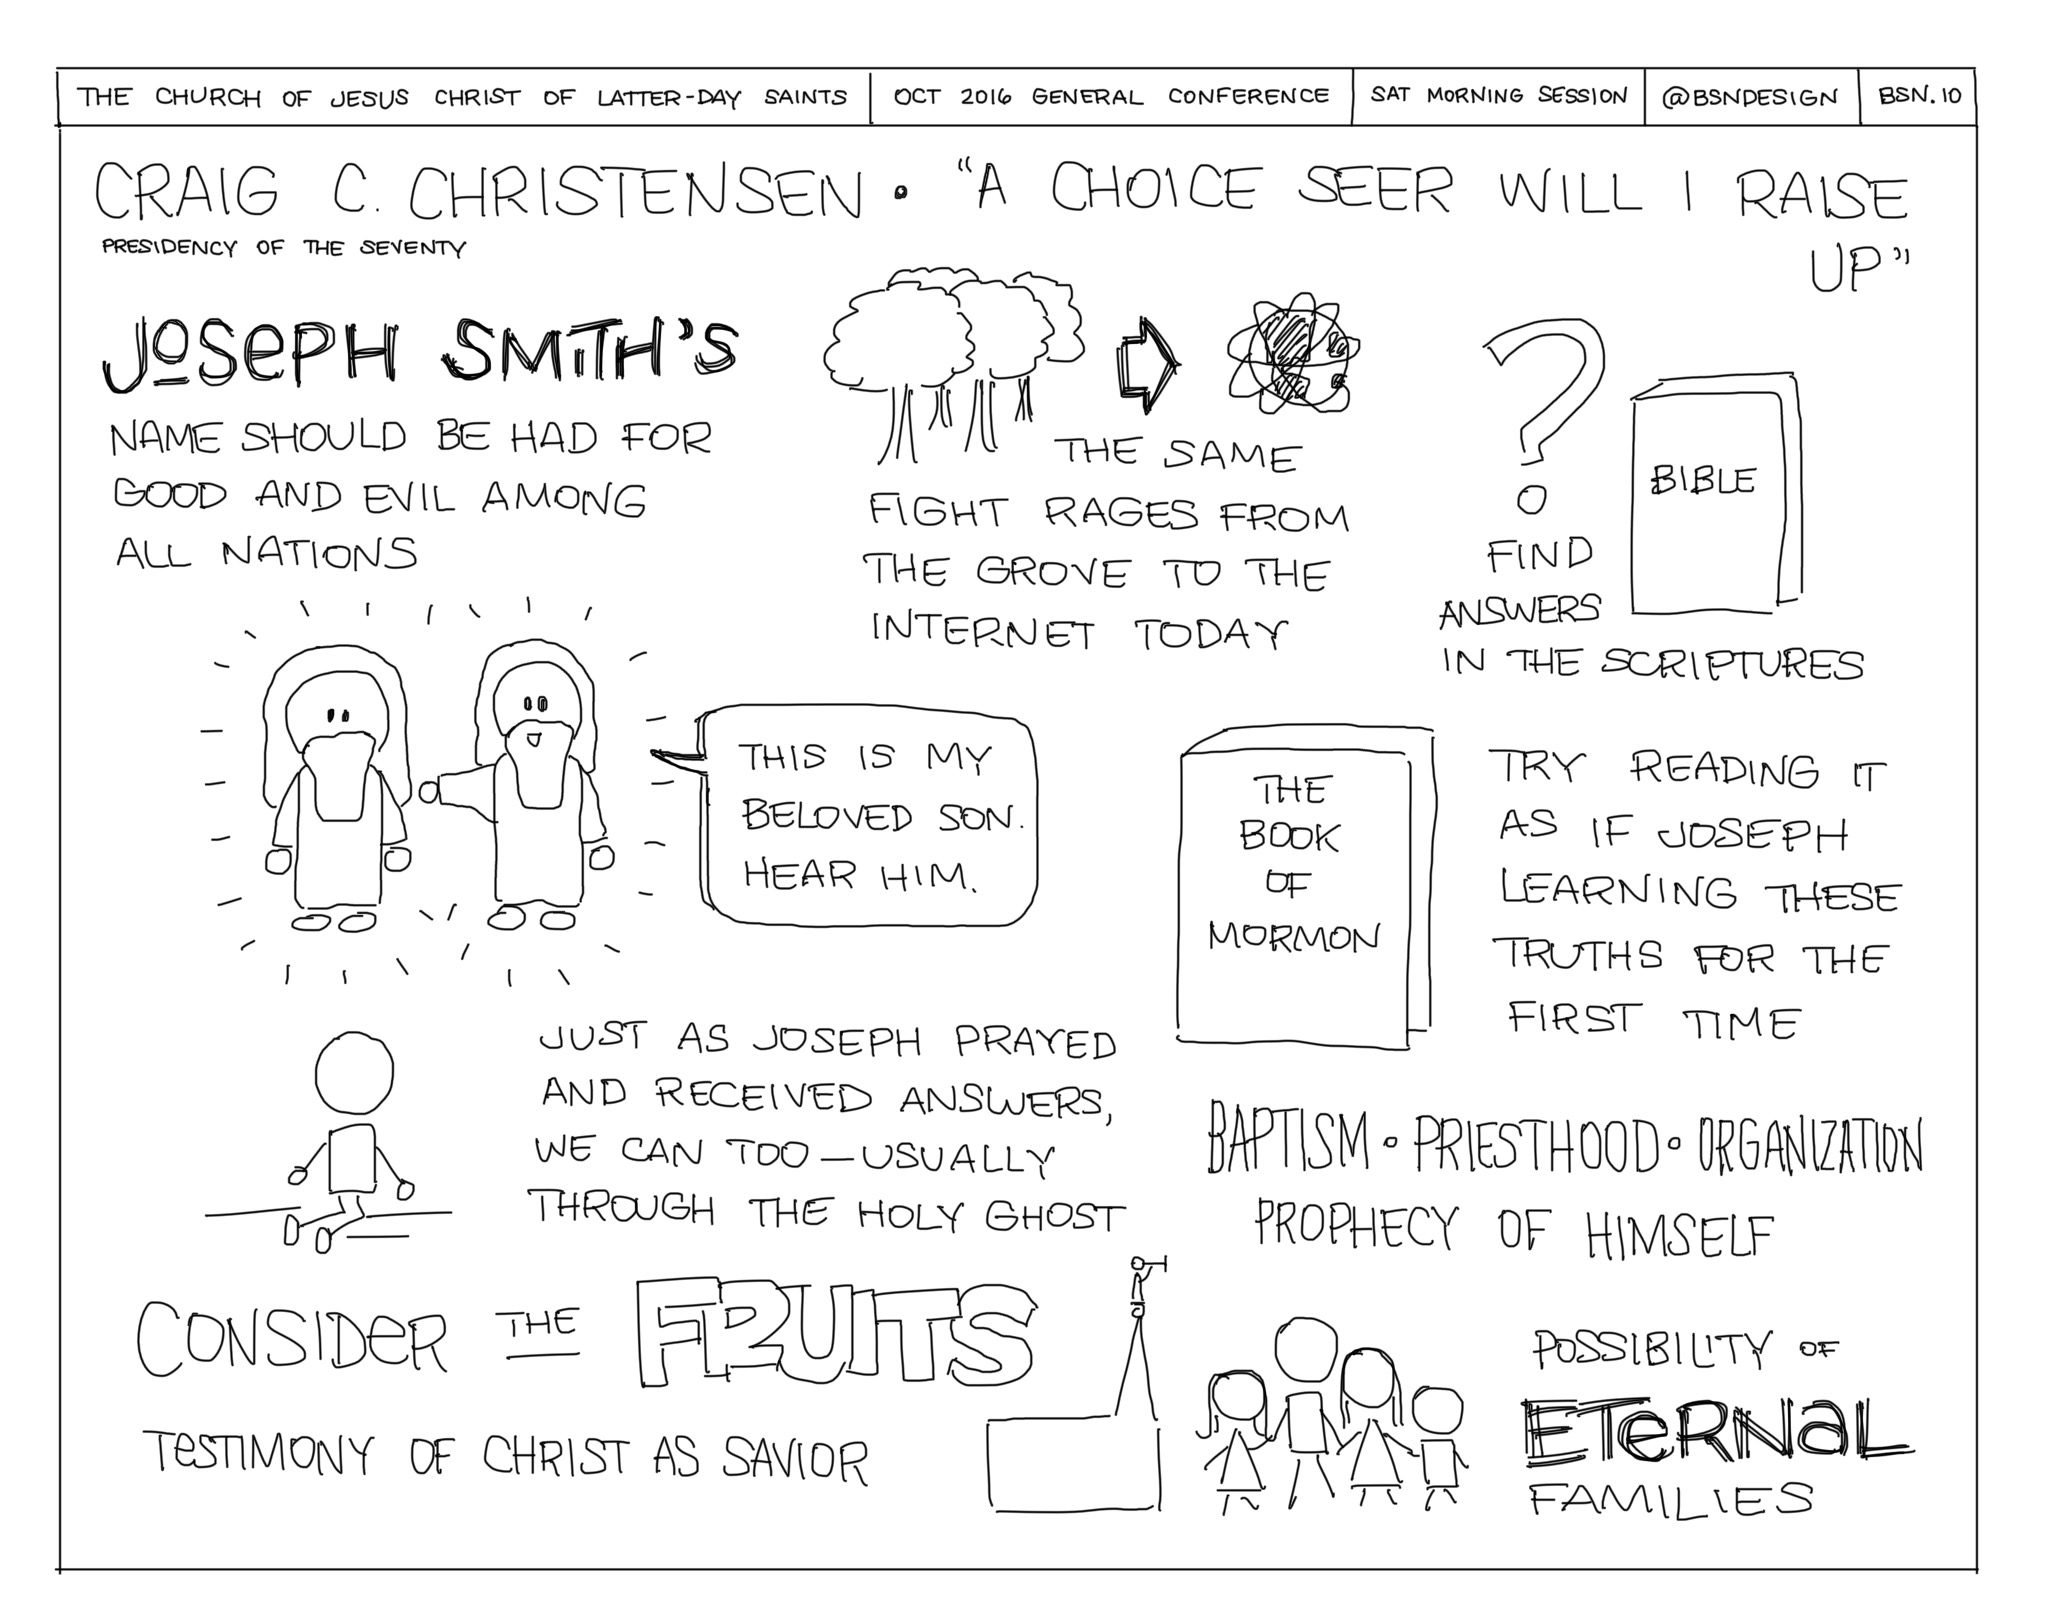 THE CHURCH OF JESUS CHRIST OF LATTER-DAY SAINTS
OCT 2016 GENERAL CONFERENCE
SAT MORNING SESSION
@BSNDESIGN
BSN.10
CRAIG C. CHRISTENSEN • "A CHOICE SEER WILL I RAISE
UP"
PRESIDENCY OF THE SEVENTY
JOSEPH SMITH'S
NAME SHOULD BE HAD FOR
GOOD AND EVIL AMONG
ALL NATIONS
THE SAME
FIGHT RAGES FROM
THE GROVE TO THE
INTERNET TODAY
BIBLE
FIND
ANSWERS
IN THE SCRIPTURES
THIS IS MY
BELOVED SON.
HEAR HIM.
THE
BOOK
OF
MORMON
TRY READING IT
AS IF JOSEPH
LEARNING THESE
TRUTHS FOR THE
FIRST TIME
JUST AS JOSEPH PRAYED
AND RECEIVED ANSWERS,
WE CAN TOO — USUALLY
THROUGH THE HOLY GHOST
BAPTISM • PRIESTHOOD • ORGANIZATION
PROPHECY OF HIMSELF
CONSIDER THE FRUITS
TESTIMONY OF CHRIST AS SAVIOR
POSSIBILITY OF
ETERNAL
FAMILIES